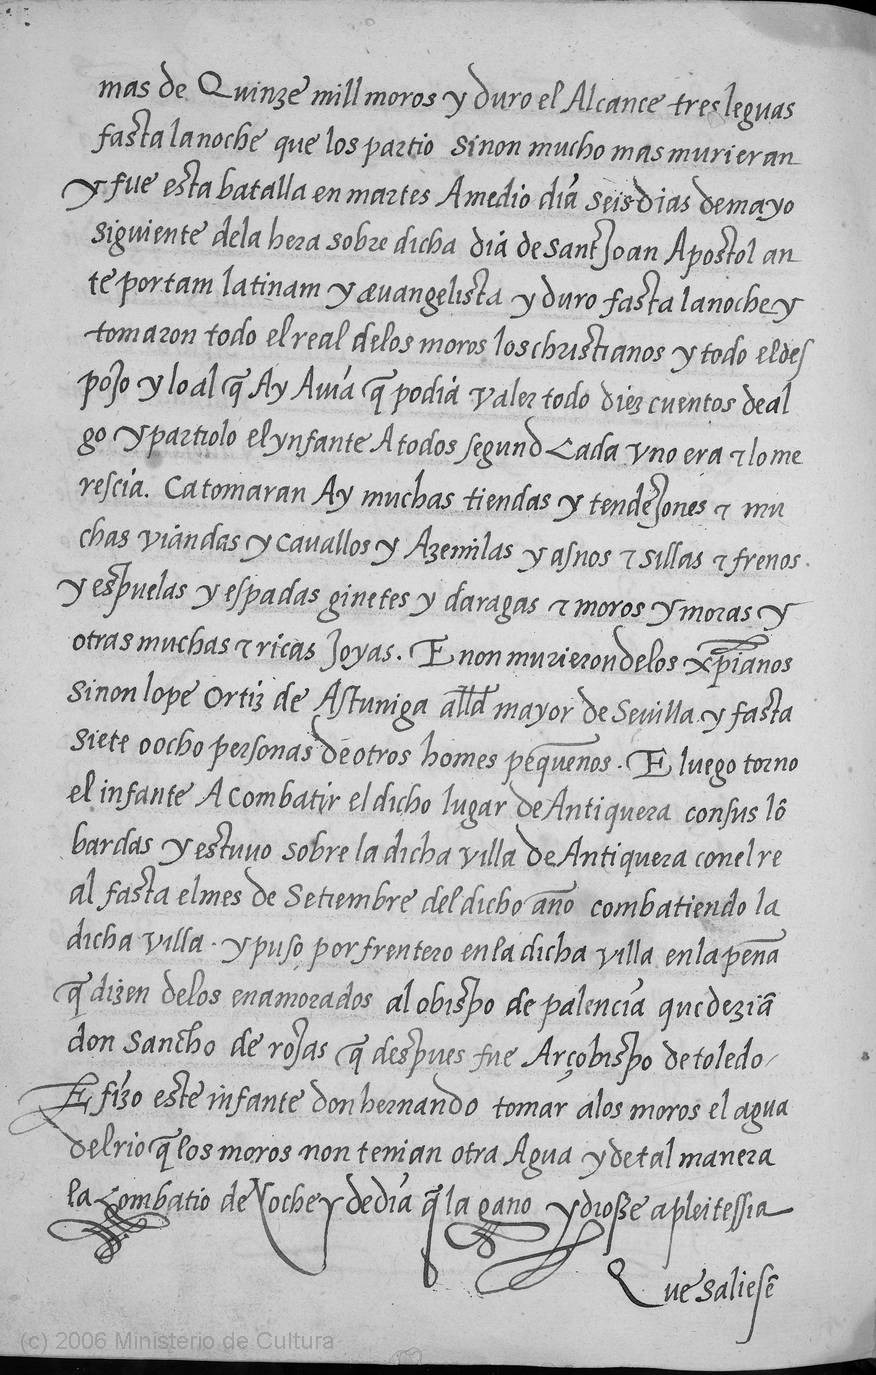 mas de Quinze mill moros y duro el Alcance tres leguas
fasta la noche que los partio sinon mucho mas murieran
y fue esta batalla en martes A medio diá seis dias de mayo
siguiente dela hera sobre dicha diá de sant Joan Apostol an
te portam latinam y æuangelista y duro fasta la noche y
tomaron todo el real delos moros los christianos y todo el des
pojo y lo al q̄ Ay Auiá q̄ podiá valer todo diez cuentos de al
go y partiolo el ynfante A todos segund Cada vno era τ lo me
resciá. Ca tomaran Ay muchas tiendas y tendejones τ mu
chas viandas y cauallos y Azemilas y asnos τ sillas τ frenos.
y espuelas y espadas ginetes y daragas τ moros y moras y
otras muchas τ ricas Joyas. E non murieron delos xp̄ianos
sinon lope Ortiz de Astuniga alld̄ mayor de Seuilla y fasta
siete o ocho personas de otros homes pequenos. E luego torno
el infante A combatir el dicho lugar de Antiquera con sus lō
bardas y estuuo sobre la dicha villa de Antiquera con el re
al fasta el mes de Setiembre del dicho año combatiendo la
dicha villa. y puso por frentero en la dicha villa en la peña
q̄ dizen delos enamorados al obispo de palenciá que deziā
don Sancho de rojas q̄ despues fue Arçobispo de toledo/
E fizo este infante don hernando tomar alos moros el agua
del rio q̄ los moros non tenian otra Agua y de tal manera
la Combatio de Noche y de diá q̄ la gano y diosse a pleitessia
Que saliesē
(c) 2006 Ministerio de Cultura